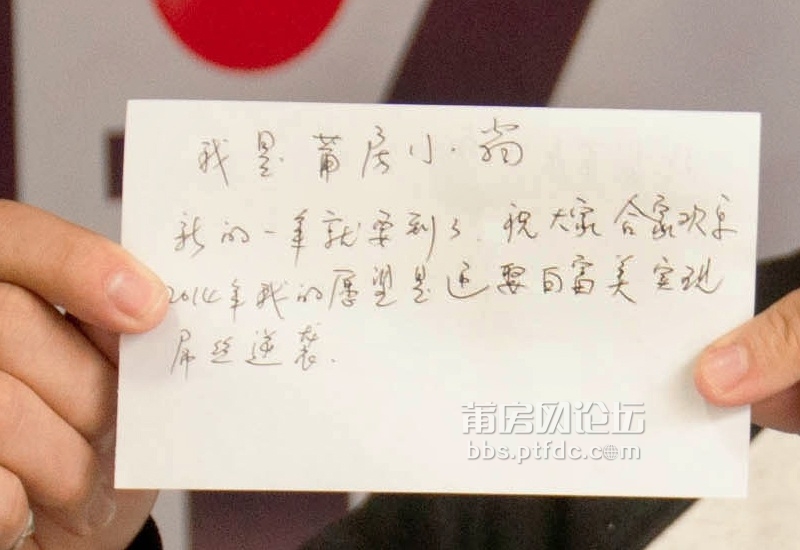 我是莆房小
新的一年就要到了.祝大家合家欢乐
2014年我的愿望是迎娶白富美实现
屌丝逆袭.
莆房网论坛
bbs.ptfdc.com